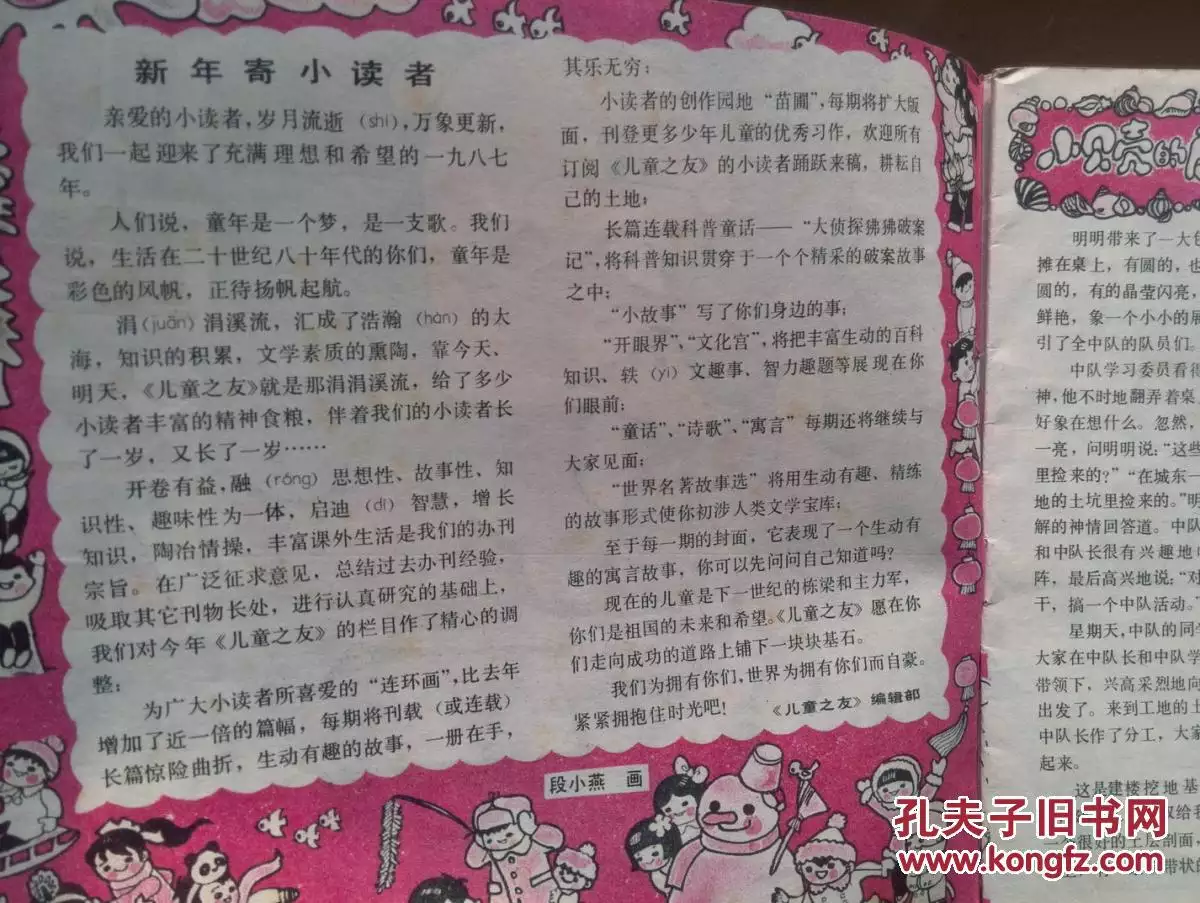 新年寄小读者
亲爱的小读者，岁月流逝（shì），万象更新，
我们一起迎来了充满理想和希望的一九八七
年。
人们说，童年是一个梦，是一支歌。我们
说，生活在二十世纪八十年代的你们，童年是
彩色的风帆，正待扬帆起航。
涓（juān）涓溪流，汇成了浩瀚（hàn）的大
海，知识的积累，文学素质的熏陶，靠今天、
明天，《儿童之友》就是那涓涓溪流，给了多少
小读者丰富的精神食粮，伴着我们的小读者长
了一岁，又长了一岁……
开卷有益，融（róng）思想性、故事性、知
识性、趣味性为一体，启迪（dí）智慧，增长
知识，陶冶情操，丰富课外生活是我们的办刊
宗旨。在广泛征求意见，总结过去办刊经验，
吸取其它刊物长处，进行认真研究的基础上，
我们对今年《儿童之友》的栏目作了精心的调
整：
为广大小读者所喜爱的“连环画”，比去年
增加了近一倍的篇幅，每期将刊载（或连载）
长篇惊险曲折，生动有趣的故事，一册在手，
其乐无穷；
小读者的创作园地“苗圃”，每期将扩大版
面，刊登更多少年儿童的优秀习作，欢迎所有
订阅《儿童之友》的小读者踊跃来稿，耕耘自
己的土地；
长篇连载科普童话——“大侦探狒狒破案
记”，将科普知识贯穿于一个个精采的破案故事
之中；
“小故事”写了你们身边的事；
“开眼界”，“文化宫”，将把丰富生动的百科
知识、轶（yì）文趣事、智力趣题等展现在你
们眼前；
“童话”、“诗歌”、“寓言”每期还将继续与
大家见面；
“世界名著故事选”将用生动有趣、精练
的故事形式使你初涉人类文学宝库；
至于每一期的封面，它表现了一个生动有
趣的寓言故事，你可以先问问自己知道吗？
现在的儿童是下一世纪的栋梁和主力军，
你们是祖国的未来和希望。《儿童之友》愿在你
们走向成功的道路上铺下一块块基石。
我们为拥有你们，世界为拥有你们而自豪。
紧紧拥抱住时光吧！ 《儿童之友》编辑部
段小燕 画
小贝壳的
明明带来了一大包
摊在桌上，有圆的，也
圆的，有的晶莹闪亮，
鲜艳，象一个小小的展
引了全中队的队员们。
中队学习委员看得
神，他不时地翻弄着桌
好象在想什么。忽然，
一亮，问明明说：“这些
里捡来的？”“在城东一
地的土坑里捡来的。”明
解的神情回答道。中队
和中队长很有兴趣地
阵，最后高兴地说：“对
干，搞一个中队活动。”
星期天，中队的同学
大家在中队长和中队学
带领下，兴高采烈地向
出发了。来到工地的土
中队长作了分工，大家
起来。
这是建楼挖地基
给我
一个很好的土层剖面，
带状
孔夫子旧书网
www.kongfz.com